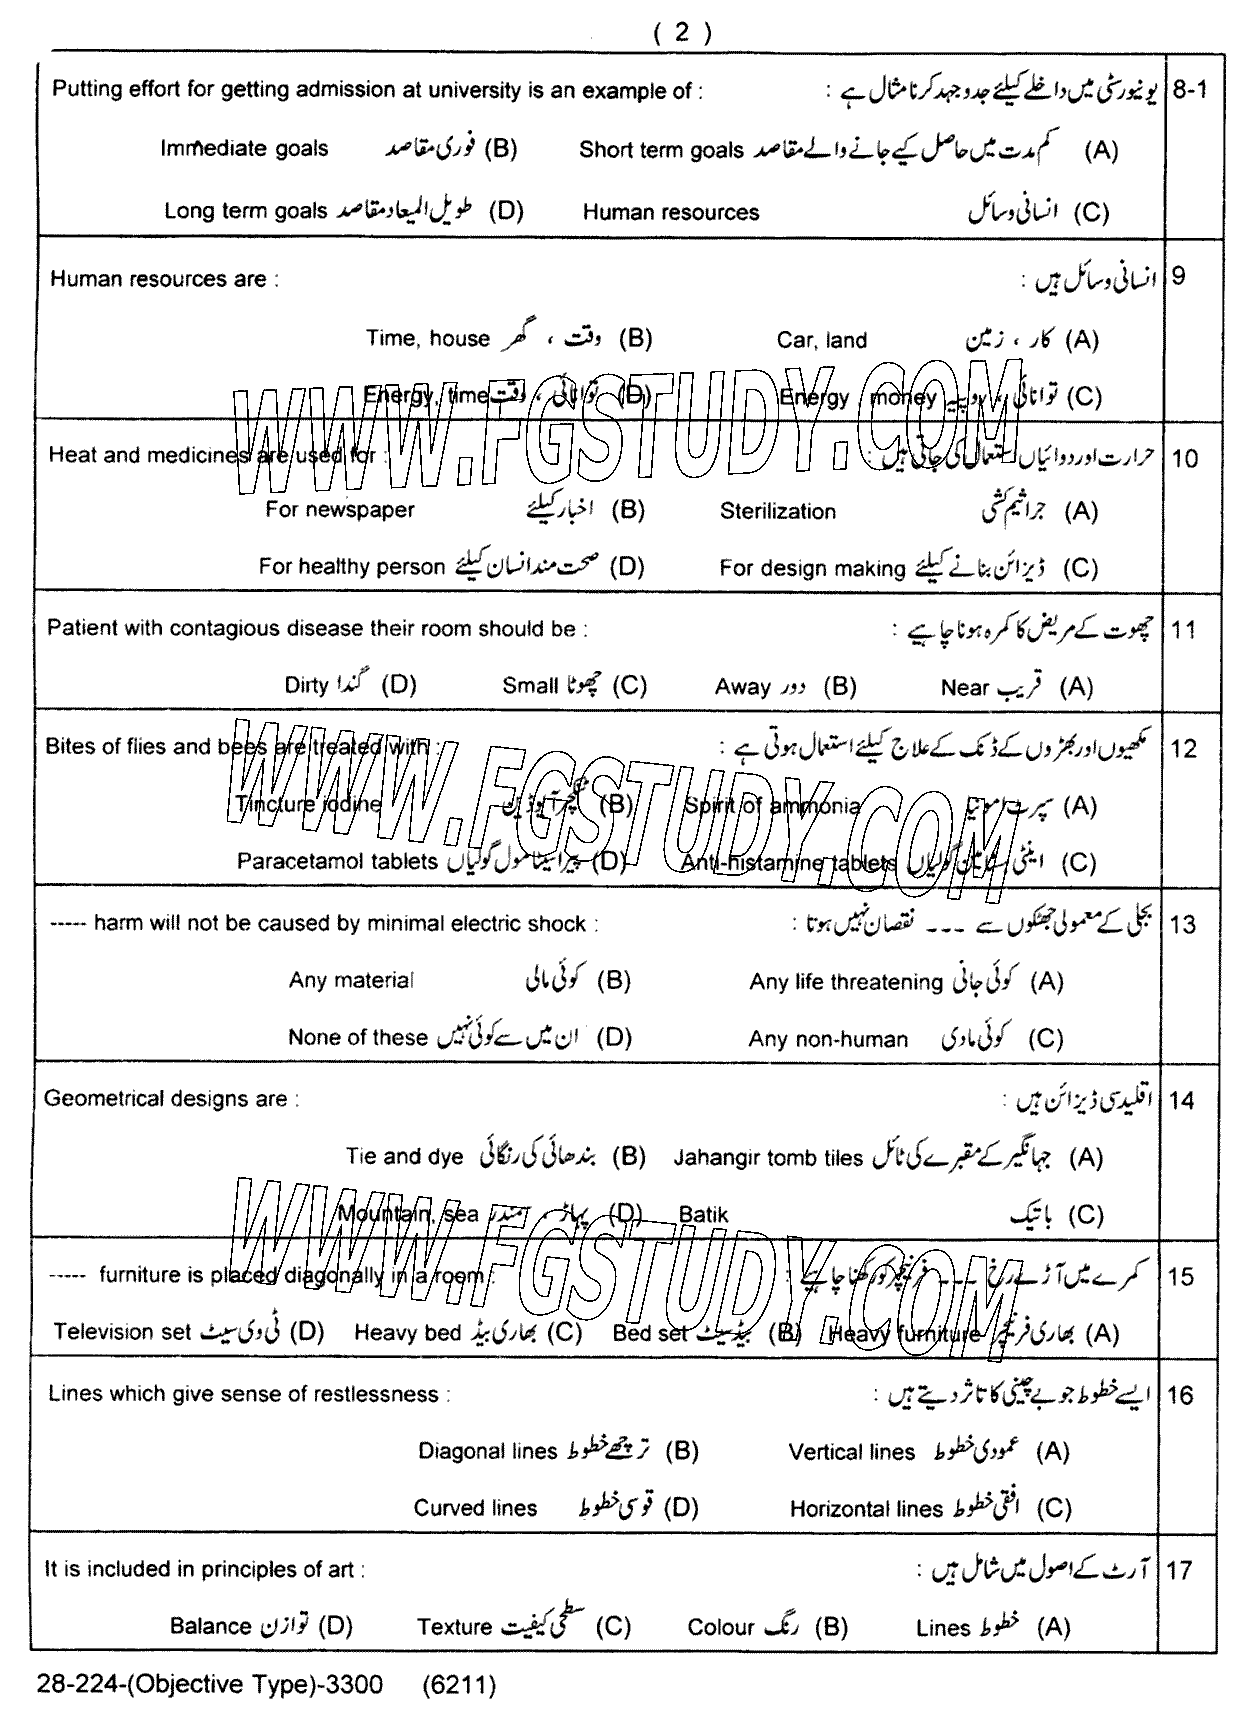 ( 2 )
Putting effort for getting admission at university is an example of : یونیورسٹی میں داخلے کیلئے جدوجہد کرنا مثال ہے : 8-1
Immediate goals فوری مقاصد (B) Short term goals کم مدت میں حاصل کیے جانے والے مقاصد (A)
Long term goals طویل المیعاد مقاصد (D) Human resources انسانی وسائل (C)
Human resources are : انسانی وسائل ہیں : 9
Time, house وقت ، گھر (B) Car, land کار ، زمین (A)
Energy, time توانائی ، وقت (D) Energy , money توانائی ، روپیہ (C)
WWW.FGSTUDY.COM
Heat and medicines are used for : حرارت اور دوائیاں استعمال کی جاتی ہیں : 10
For newspaper اخبار کیلئے (B) Sterilization جراثیم کشی (A)
For healthy person صحت مند انسان کیلئے (D) For design making ڈیزائن بنانے کیلئے (C)
Patient with contagious disease their room should be : چھوت کے مریض کا کمرہ ہونا چاہیے : 11
Dirty گندا (D) Small چھوٹا (C) Away دور (B) Near قریب (A)
Bites of flies and bees are treated with : مکھیوں اور بھڑوں کے ڈنک کے علاج کیلئے استعمال ہوتی ہے : 12
Tincture iodine ٹنکچر آیوڈین (B) Spirit of ammonia سپرٹ امونیا (A)
WWW.FGSTUDY.COM
Paracetamol tablets پیراسیٹامول گولیاں (D) Anti-histamine tablets اینٹی ہسٹامین گولیاں (C)
----- harm will not be caused by minimal electric shock : بجلی کے معمولی جھٹکوں سے --- نقصان نہیں ہوتا : 13
Any material کوئی مالی (B) Any life threatening کوئی جانی (A)
None of these ان میں سے کوئی نہیں (D) Any non-human کوئی مادی (C)
Geometrical designs are : اقلیدسی ڈیزائن ہیں : 14
Tie and dye بندھائی کی رنگائی (B) Jahangir tomb tiles جہانگیر کے مقبرے کی ٹائل (A)
Mountain, sea پہاڑ ، سمندر (D) Batik باتیک (C)
WWW.FGSTUDY.COM
----- furniture is placed diagonally in a room : کمرے میں آڑے رخ --- فرنیچر کو رکھنا چاہیے : 15
Television set ٹی وی سیٹ (D) Heavy bed بھاری بیڈ (C) Bed set بیڈ سیٹ (B) Heavy furniture بھاری فرنیچر (A)
Lines which give sense of restlessness : ایسے خطوط جو بے چینی کا تاثر دیتے ہیں : 16
Diagonal lines ترچھے خطوط (B) Vertical lines عمودی خطوط (A)
Curved lines قوسی خطوط (D) Horizontal lines افقی خطوط (C)
It is included in principles of art : آرٹ کے اصول میں شامل ہیں : 17
Balance توازن (D) Texture سطحی کیفیت (C) Colour رنگ (B) Lines خطوط (A)
28-224-(Objective Type)-3300 (6211)